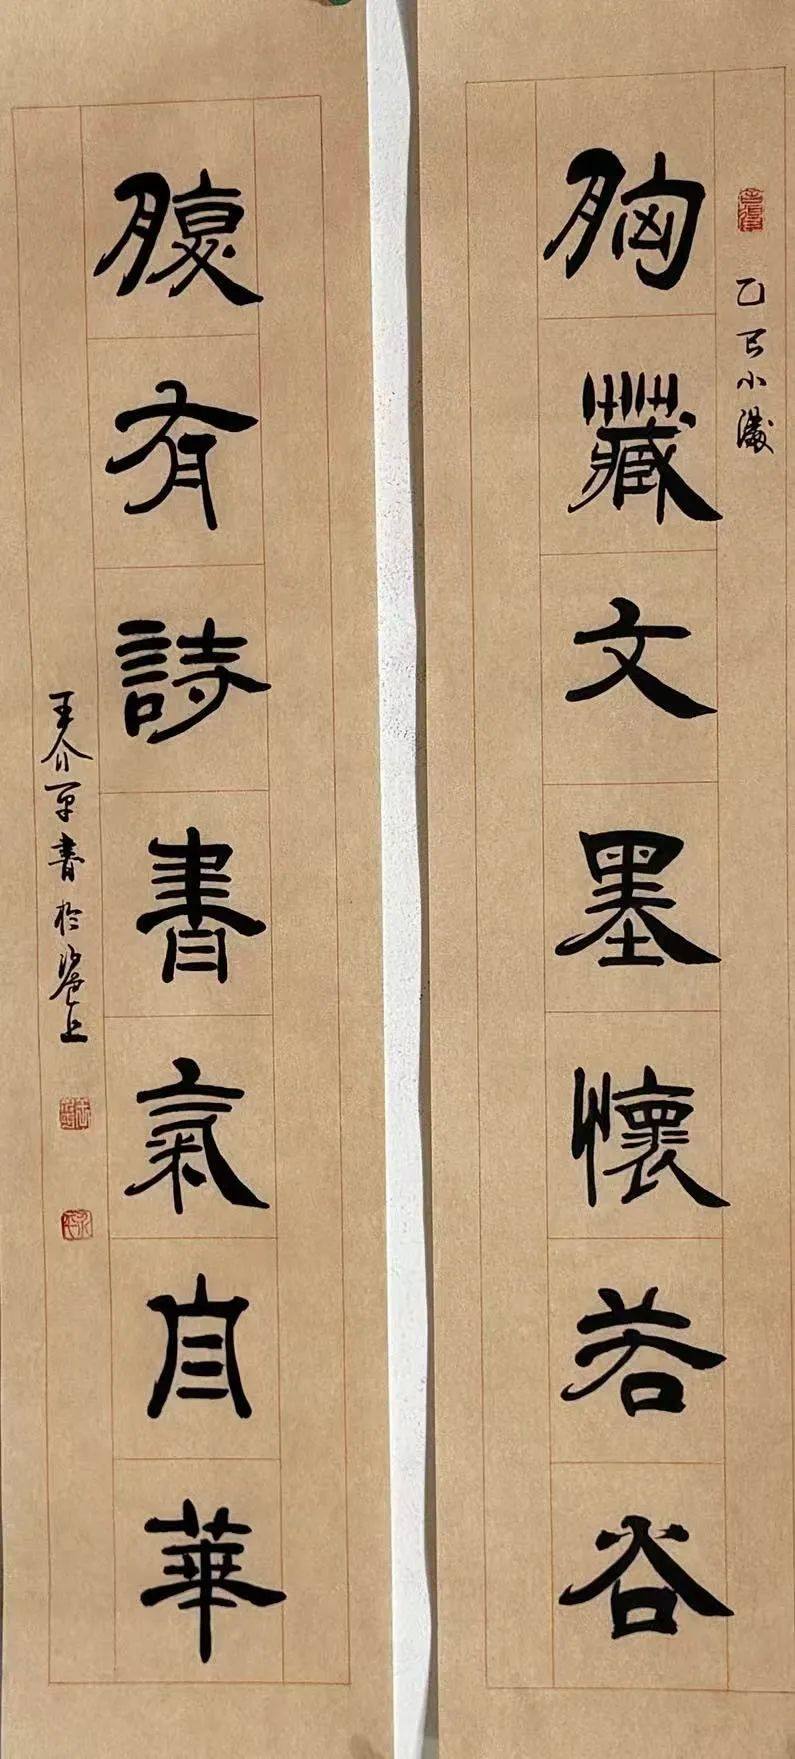 胸藏文墨懷若谷
乙巳小滿
腹有詩書氣自華
王介平書於上